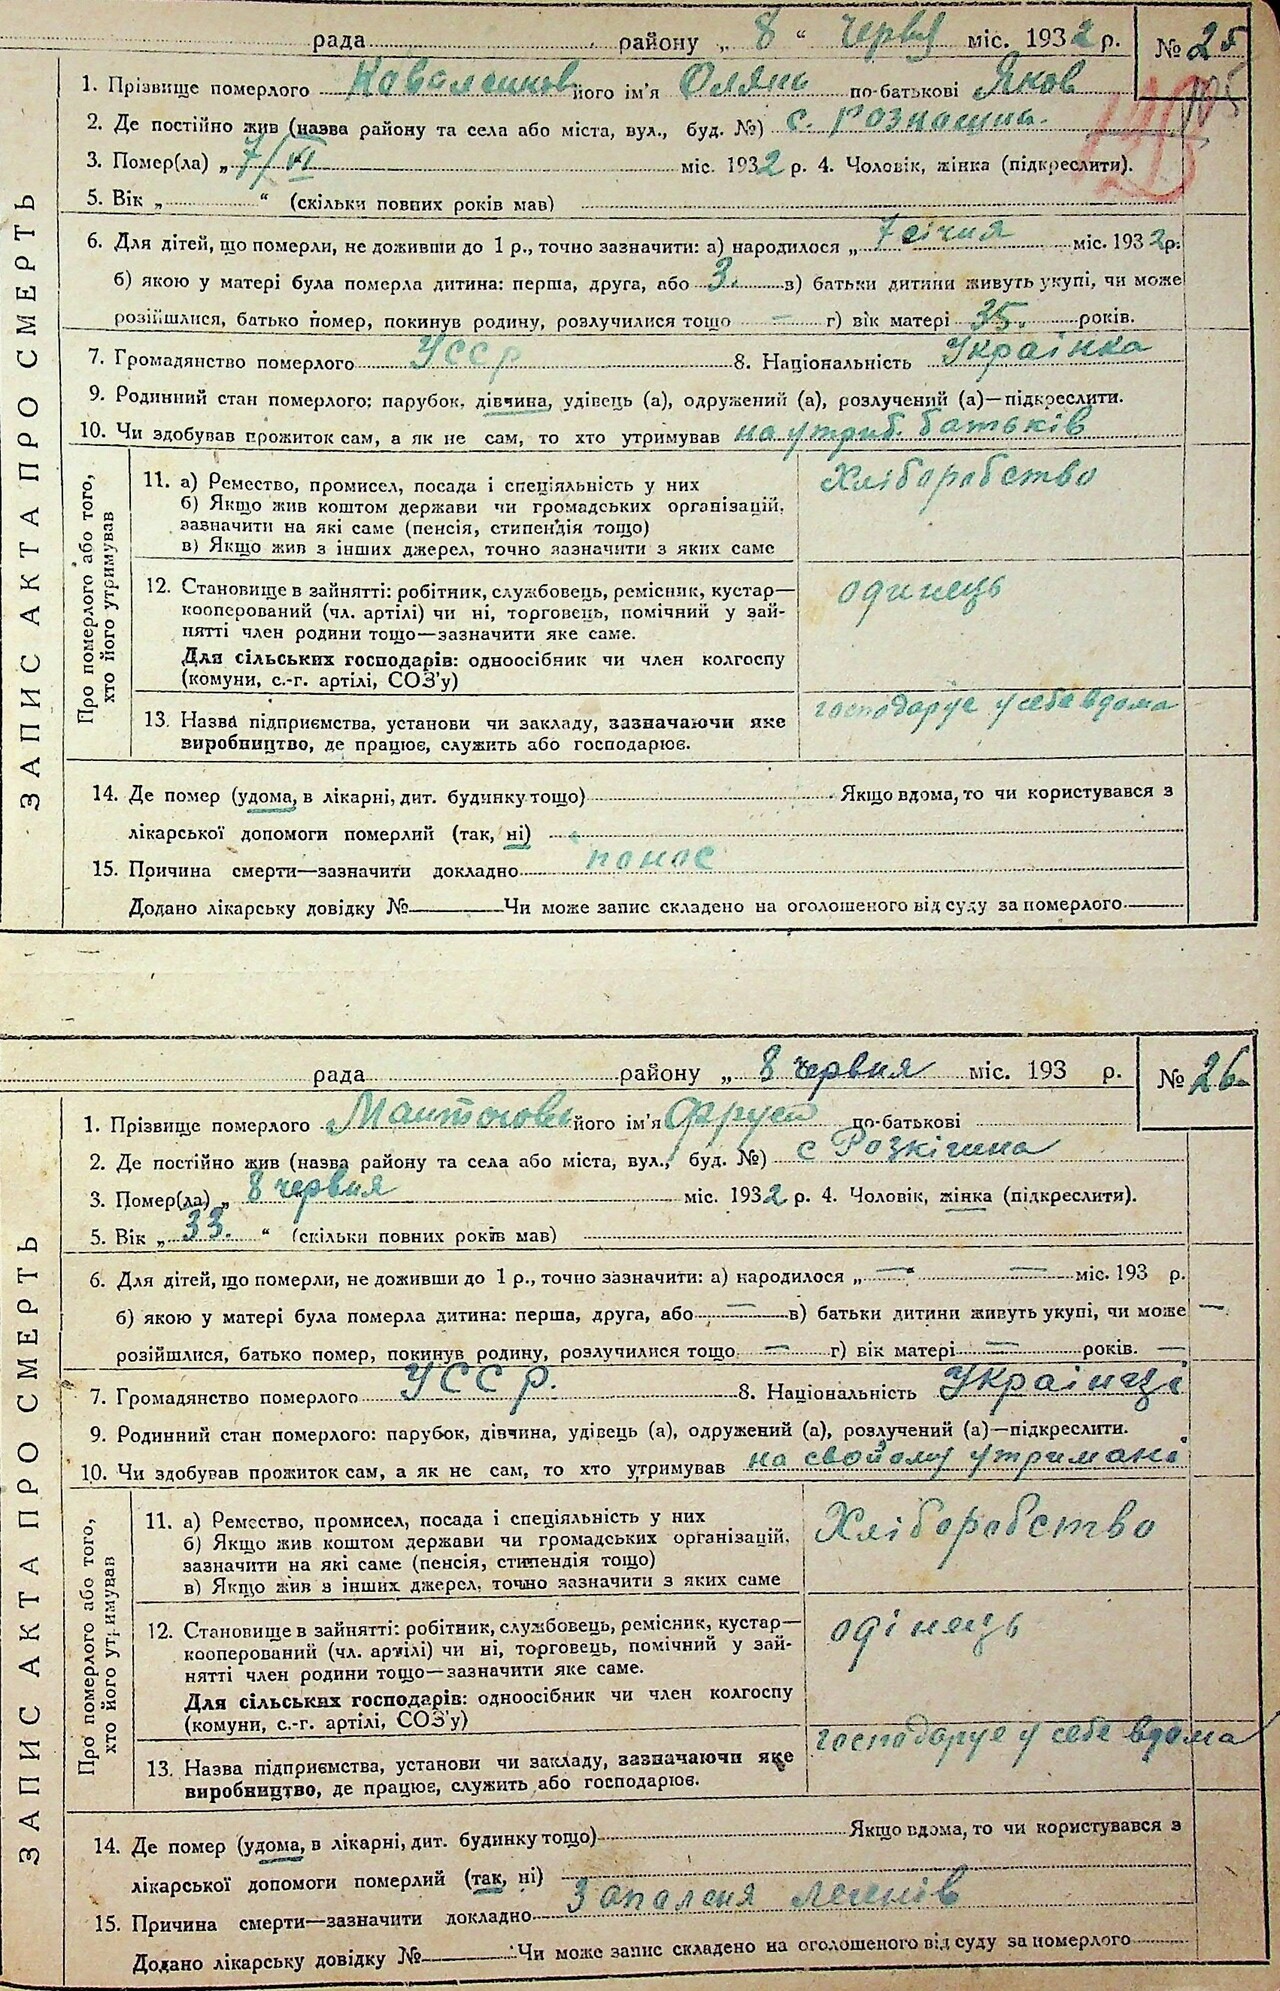 рада района „ 8 “ червя міс. 1932 р. № 25
1. Прізвище померлого його ім'я Олянь по-батькові Яков
2. Де постійно жив (назва району та села або міста, вул., буд. №) с.
3. Помер(ла) „ 7/VI міс. 1932 р. 4. Чоловік, жінка (підкреслити).
5. Вік „ “ (скільки повних років мав)
6. Для дітей, що померли, не доживши до 1 р., точно зазначити: а) народилося „ 7 січня міс. 1932 р.
б) якою у матері була померла дитина: перша, друга, або 3. в) батьки дитини живуть укупі, чи може
розійшлися, батько помер, покинув родину, розлучилися тощо — г) вік матері 35. років.
7. Громадянство померлого УССР 8. Національність Українка
9. Родинний стан померлого: парубок, дівчина, удівець (а), одружений (а), розлучений (а)—підкреслити.
10. Чи здобував прожиток сам, а як не сам, то хто утримував на утриб. батьків
ЗАПИС АКТА ПРО СМЕРТЬ
Про померлого або того,
хто його утримував
11. а) Ремество, промисел, посада і спеціяльність у них Хліборобство
б) Якщо жив коштом держави чи громадських організацій,
зазначити на які саме (пенсія, стипендія тощо)
в) Якщо жив з інших джерел, точно зазначити з яких саме
12. Становище в зайнятті: робітник, службовець, ремісник, кустар— одинець
кооперований (чл. артілі) чи ні, торговець, помічний у зай-
нятті член родини тощо—зазначити яке саме.
Для сільських господарів: одноосібник чи член колгоспу
(комуни, с.-г. артілі, СОЗ'у)
13. Назва підприємства, установи чи закладу, зазначаючи яке господарує у себе вдома
виробництво, де працює, служить або господарює.
14. Де помер (удома, в лікарні, дит. будинку тощо) Якщо вдома, то чи користувався з
лікарської допомоги померлий (так, ні)
15. Причина смерти—зазначити докладно понос
Додано лікарську довідку № Чи може запис складено на оголошеного від суду за померлого
рада району „ 8 червня міс. 193 р. № 26
1. Прізвище померлого його ім'я по-батькові
2. Де постійно жив (назва району та села або міста, вул., буд. №) с
3. Помер(ла) „ 8 червня міс. 1932 р. 4. Чоловік, жінка (підкреслити).
5. Вік „ 33. “ (скільки повних років мав)
6. Для дітей, що померли, не доживши до 1 р., точно зазначити: а) народилося „ — — міс. 193 р.
б) якою у матері була померла дитина: перша, друга, або — в) батьки дитини живуть укупі, чи може —
розійшлися, батько помер, покинув родину, розлучилися тощо — г) вік матері — років. —
7. Громадянство померлого УССР. 8. Національність
9. Родинний стан померлого: парубок, дівчина, удівець (а), одружений (а), розлучений (а)—підкреслити.
10. Чи здобував прожиток сам, а як не сам, то хто утримував на свойому утримані
ЗАПИС АКТА ПРО СМЕРТЬ
Про померлого або того,
хто його утримував
11. а) Ремество, промисел, посада і спеціяльність у них Хліборобство
б) Якщо жив коштом держави чи громадських організацій,
зазначити на які саме (пенсія, стипендія тощо)
в) Якщо жив з інших джерел, точно зазначити з яких саме
12. Становище в зайнятті: робітник, службовець, ремісник, кустар— одінець
кооперований (чл. артілі) чи ні, торговець, помічний у зай-
нятті член родини тощо—зазначити яке саме.
Для сільських господарів: одноосібник чи член колгоспу
(комуни, с.-г. артілі, СОЗ'у)
13. Назва підприємства, установи чи закладу, зазначаючи яке господарує у себе вдома
виробництво, де працює, служить або господарює.
14. Де помер (удома, в лікарні, дит. будинку тощо) Якщо вдома, то чи користувався з
лікарської допомоги померлий (так, ні)
15. Причина смерти—зазначити докладно Запаленя легенів
Додано лікарську довідку № Чи може запис складено на оголошеного від суду за померлого